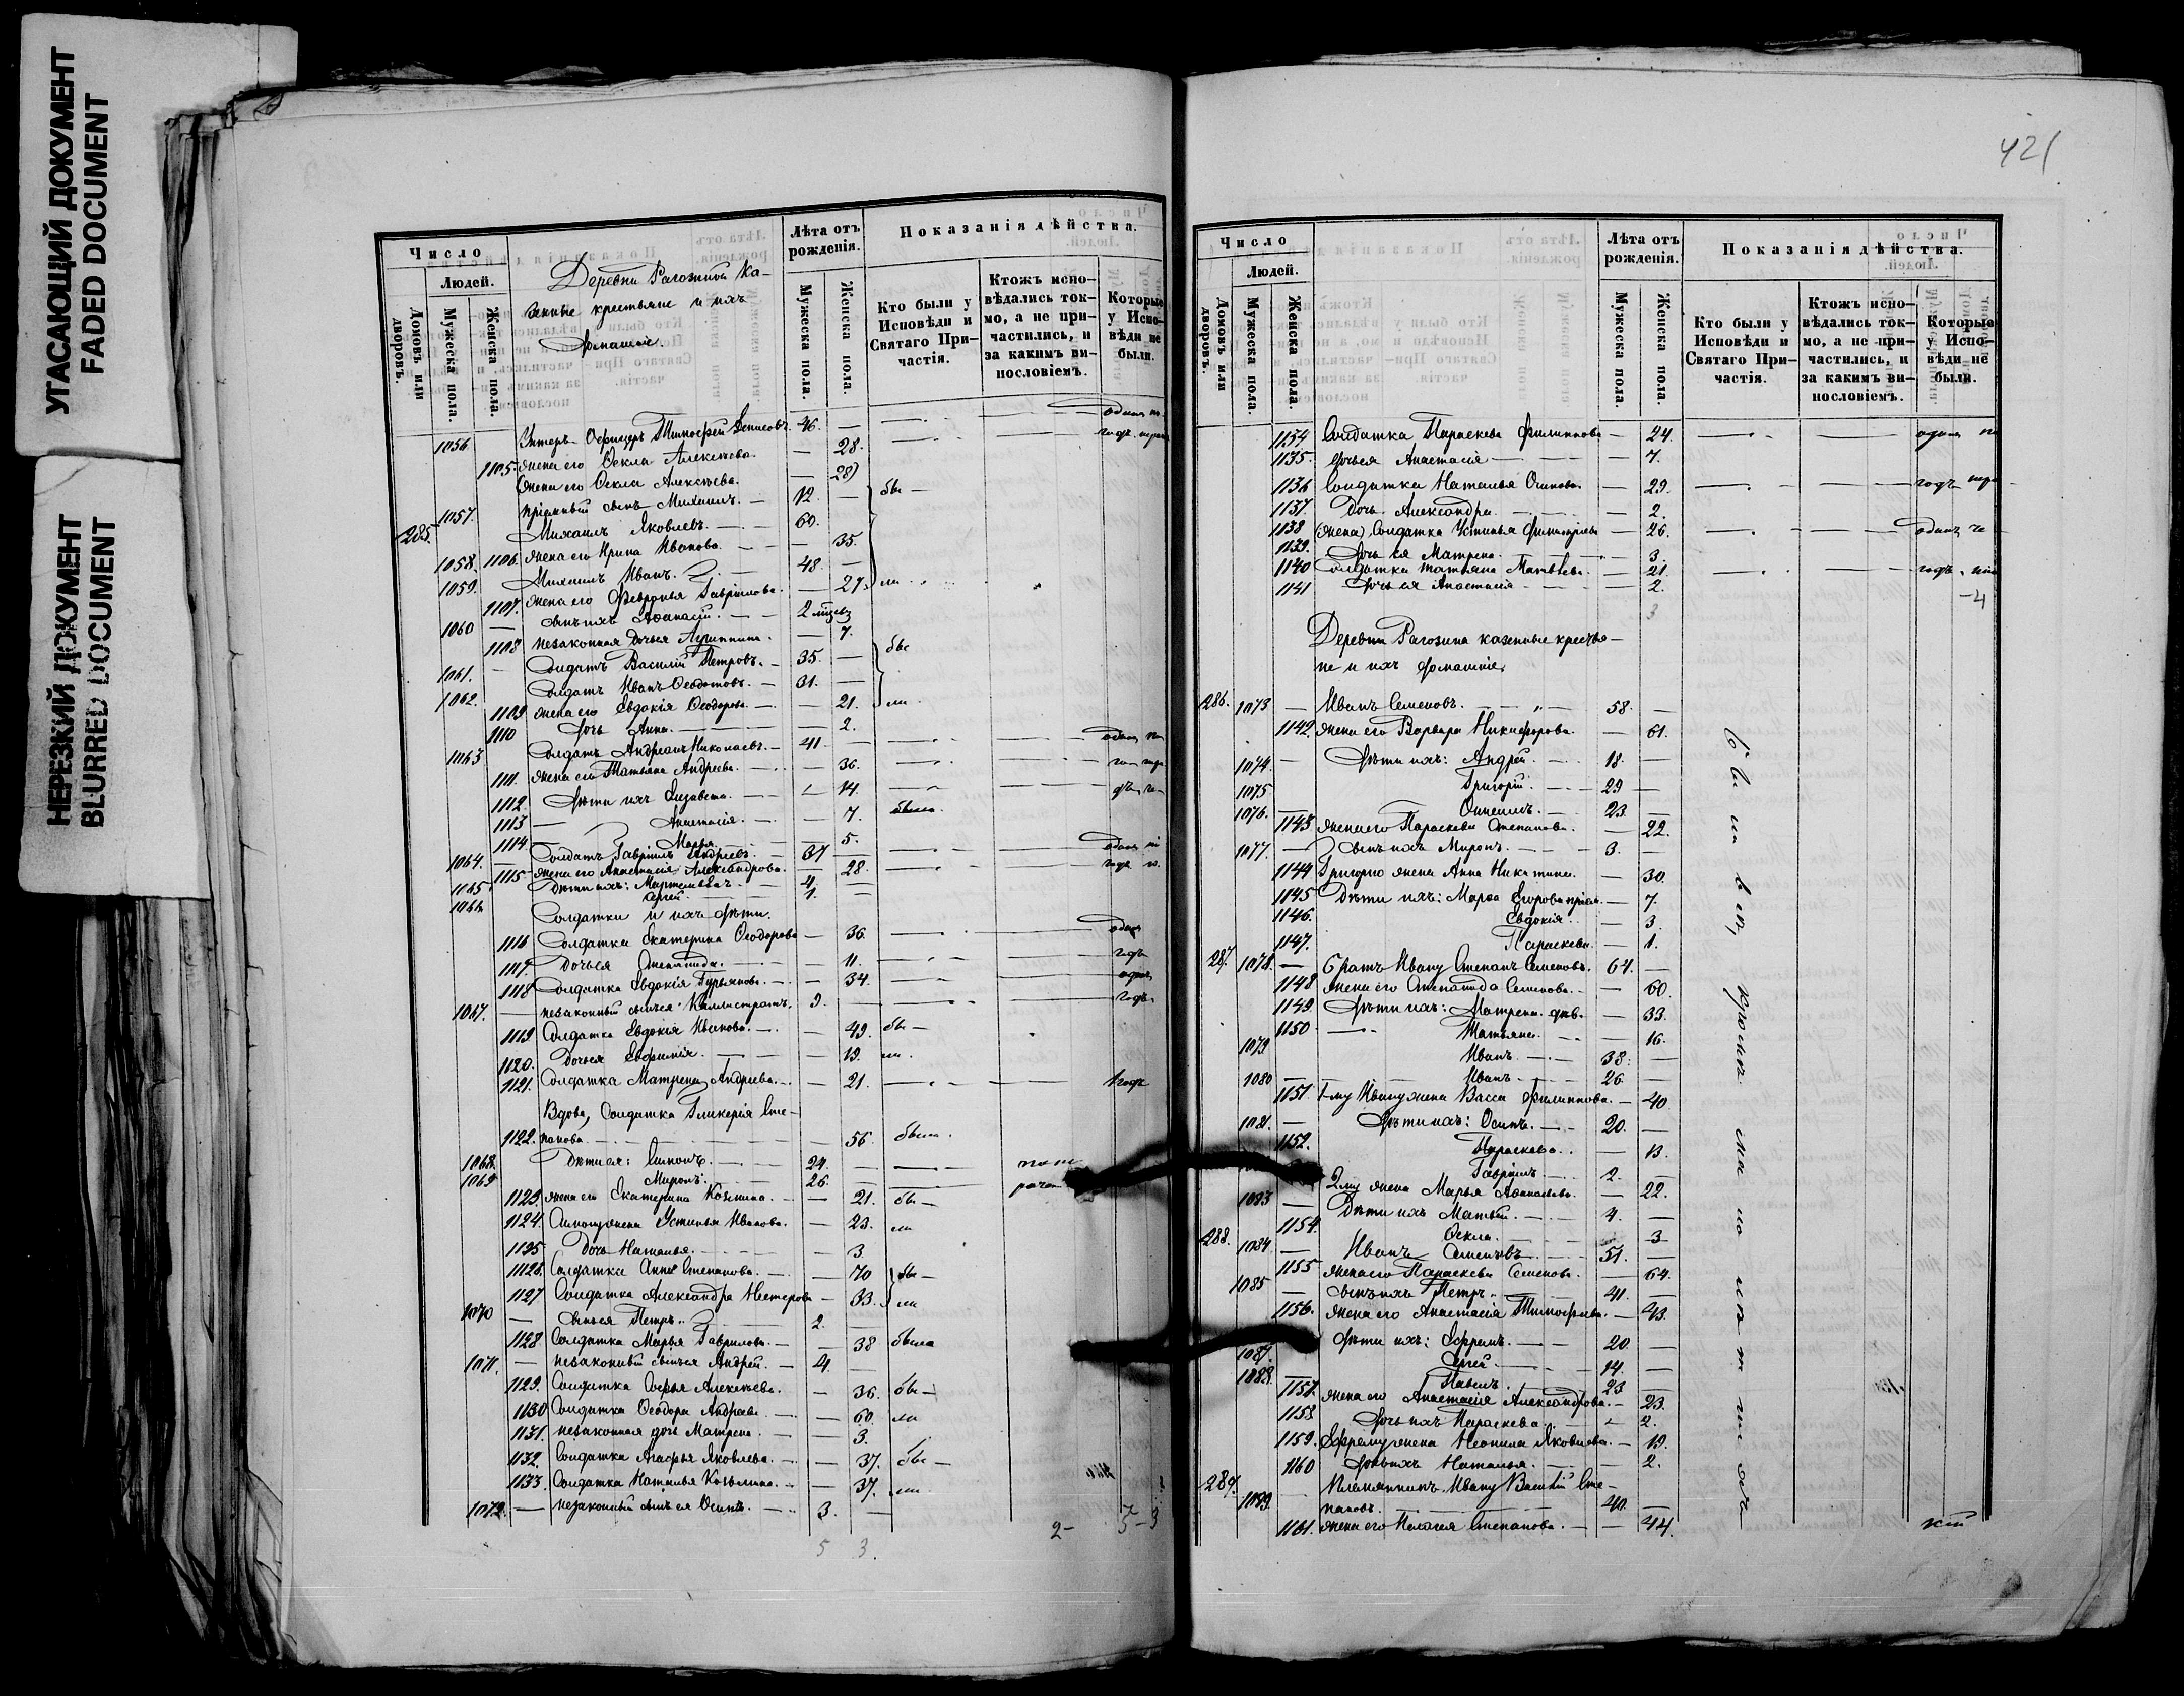 УГАСАЮЩИЙ ДОКУМЕНТ
FADED DOCUMENT
НЕРЕЗКИЙ ДОКУМЕНТ
BLURRED DOCUMENT
Число
Людей.
Домовъ или дворовъ.
Мужеска пола.
Женска пола.
Деревни Рагозиной Ка-
зенные крестьяне и ихъ
домашніе.
Лѣта отъ рожденія.
Мужеска пола.
Женска пола.
Показанія дѣйства.
Кто были у Исповѣди и Святаго При-частія.
Ктожъ испо-вѣдались ток-мо, а не при-частились, и за какимъ ви-нословіемъ.
Которые у Испо-вѣди не были.
1056. Унтеръ-Офицеръ Тимофей Денисовъ. 46.
1105. жена его Ѳекла Алексѣева. — 28.
(жена его Ѳекла Алексѣева. — 28)
1057. пріемный сынъ Михаилъ. — 12. — бы —
285. Михаилъ Яковлевъ. — 60.
1058. 1106. жена его Ирина Иванова. — 35.
1059. Михаилъ Иванъ. — 48. —
1107. жена его Февронья Гаврилова. — 27. ли
1060 — сынъ ихъ Аѳанасій. — 2 мѣсяц
1108 незаконная дочь ея — 7.
1061. — Солдатъ Василій Петровъ. — 35. — бы
1062. Солдатъ Иванъ Ѳеодотовъ. — 31. —
1109 жена его Евдокія Ѳеодорова — 21. ли
1110 дочь Анна. — 2.
1063 Солдатъ Андреанъ Николаевъ. — 41. —
1111. жена его Татьяна Андреева. — 36.
1112. дѣти ихъ Елизавета. — 14.
1113 — Анастасія. — 7. была.
1114 Марья. — 5.
1064. Солдатъ Гавріилъ Андреевъ. 37 —
1115 жена его Анастасія Александрова. — 28.
1065 Дѣти ихъ: 4.
1066 Сергей 1.
Солдатки и ихъ дѣти.
1116 Солдатка Екатерина Ѳеодорова — 36.
1117. дочь ея Степанида. — 11.
1118 Солдатка Евдокія Гурьянова. — 34.
1067. — незаконный сынъ ея Каллистратъ. 9. —
1119 Солдатка Евдокія Иванова. — 49. бы —
1120. дочь ея Евфимія. — 19. ли.
1121. Солдатка Матрена Андреева. — 21. 1 годъ
Вдова, Солдатка Гликерія Сте-
1122. панова. — 56. была.
1068. Дѣти ея: Симонъ. — 24. —
1069 Миронъ. — 26. —
1123. жена его Екатерина Козмина. — 21. бы —
1124. Симону жена Устинья Иванова. — 23. ли
1125 дочь Наталья. — 3.
1126. Солдатка Анна Степанова. — 70 бы —
1127 Солдатка Александра Нестерова — 33. ли
1070 — сынъ ея Петръ. 2. —
1128 Солдатка Марья Гаврилова. — 38 была
1071. — незаконный сынъ ея Андрей. — 4. —
1129. Солдатка Софья Алексѣева. — 36. бы —
1130 Солдатка Ѳеодора Андреева — 60. ли
1131. незаконная дочь Матрена — 3.
1132. Солдатка Агафья Яковлева. — 37. бы —
1133. Солдатка Наталья — 37. ли
1072. — незаконный сынъ ея Осипъ. — 3. —
5 3.
2 —
5 — 3
421
Число
Людей.
Домовъ или дворовъ.
Мужеска пола.
Женска пола.
Лѣта отъ рожденія.
Мужеска пола.
Женска пола.
Показанія дѣйства.
Кто были у Исповѣди и Святаго При-частія.
Ктожъ испо-вѣдались ток-мо, а не при-частились, и за какимъ ви-нословіемъ.
Которые у Испо-вѣди не были.
1134 Солдатка Параскева Филиппова — 24.
1135. дочь ея Анастасія — 7.
1136 Солдатка Наталья Осипова. — 29.
1137. Дочь Александра. — 2.
1138 (жена) Солдатка Устинья — 26.
1139. дочь ея Матрена. — 3.
1140 Солдатка Татьяна Матвѣева. — 21.
1141 дочь ея Анастасія — 2.
— 4
3
Деревни Рагозина казенные крестья-
не и ихъ домашніе.
286. 1073 — Иванъ Семеновъ. — 58. —
1142. жена его Варвара Никифорова. — 61.
1074. — дѣти ихъ: Андрей. — 18. —
1075 Григорій. — 29 —
1076. Онисимъ. — 23. —
1143 жена его Параскева Степанова. — 22.
1077. — сынъ ихъ Миронъ. — 3. —
1144 Григорію жена Анна Никитина. — 30.
1145 Дѣти ихъ: Марфа Егорова пріем. — 7.
1146. Евдокія. — 3.
1147. Параскева. — 1.
287. 1078. — Братъ Ивану Степанъ Семеновъ. 64. —
1148 жена его Степанида Семенова. — 60.
1149. Дѣти ихъ: Матрена дѣв. — 33.
1150 — Татьяна. — 16.
1079 Иванъ. — 38. —
1080 — Иванъ. — 26. —
1151. 1-му Ивану жена Васса Филиппова. — 40.
1081. — Дѣти ихъ: Осипъ. — 20. —
1152. Параскева. — 13.
Гавріилъ. — 2. —
2му жена Марья Аѳанасьева. — 22.
1083 — Дѣти ихъ Матвѣй. — 4. —
1154. Ѳекла. — 3
288. 1084 — Иванъ Семеновъ. 51. —
1155 жена его Параскева Семенова. — 64.
1085 — сынъ ихъ Петръ. — 41. —
1156. жена его Анастасія Тимофеева. — 43.
дѣти ихъ: Ефремъ. — 20. —
1087. Сергей. — 14. —
1088. — Павелъ. — 23 —
1157. жена его Анастасія Александрова. — 23.
1158 дочь ихъ Параскева. — 2.
1159. Ефрему жена Неонила Яковлева. — 19.
1160 дочь ихъ Наталья. — 2.
289. Племянникъ Ивану Василій Сте-
1089. пановъ. — 40. —
1161. жена его Пелагея Степанова. — — 44.